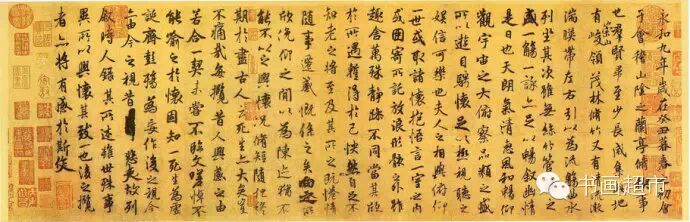 永和九年歲在癸丑暮春之初會
于會稽山陰之蘭亭脩禊事
也羣賢畢至少長咸集此地
有崇山峻領茂林脩竹又有清流激
湍暎帶左右引以為流觴曲水
列坐其次雖無絲竹管弦之
盛一觴一詠亦足以暢敘幽情
是日也天朗氣清惠風和暢仰
觀宇宙之大俯察品類之盛
所以遊目騁懷足以極視聽之
娛信可樂也夫人之相與俯仰
一世或取諸懷抱悟言一室之內
或因寄所託放浪形骸之外雖
趣舍萬殊靜躁不同當其欣
於所遇暫得於己怏然自足不
知老之將至及其所之既惓情
隨事遷感慨係之矣向之所
欣俛仰之閒以為陳迹猶不
能不以之興懷況脩短隨化終
期於盡古人云死生亦大矣豈
不痛哉每攬昔人興感之由
若合一契未嘗不臨文嗟悼不
能喻之於懷固知一死生為虛
誕齊彭殤為妄作後之視今
亦由今之視昔悲夫故列
敘時人錄其所述雖世殊事
異所以興懷其致一也後之攬
者亦將有感於斯文
书画超市